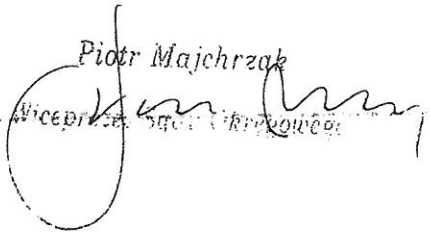 Piotr Majchrzak
Wiceprezes Sądu Okręgowego